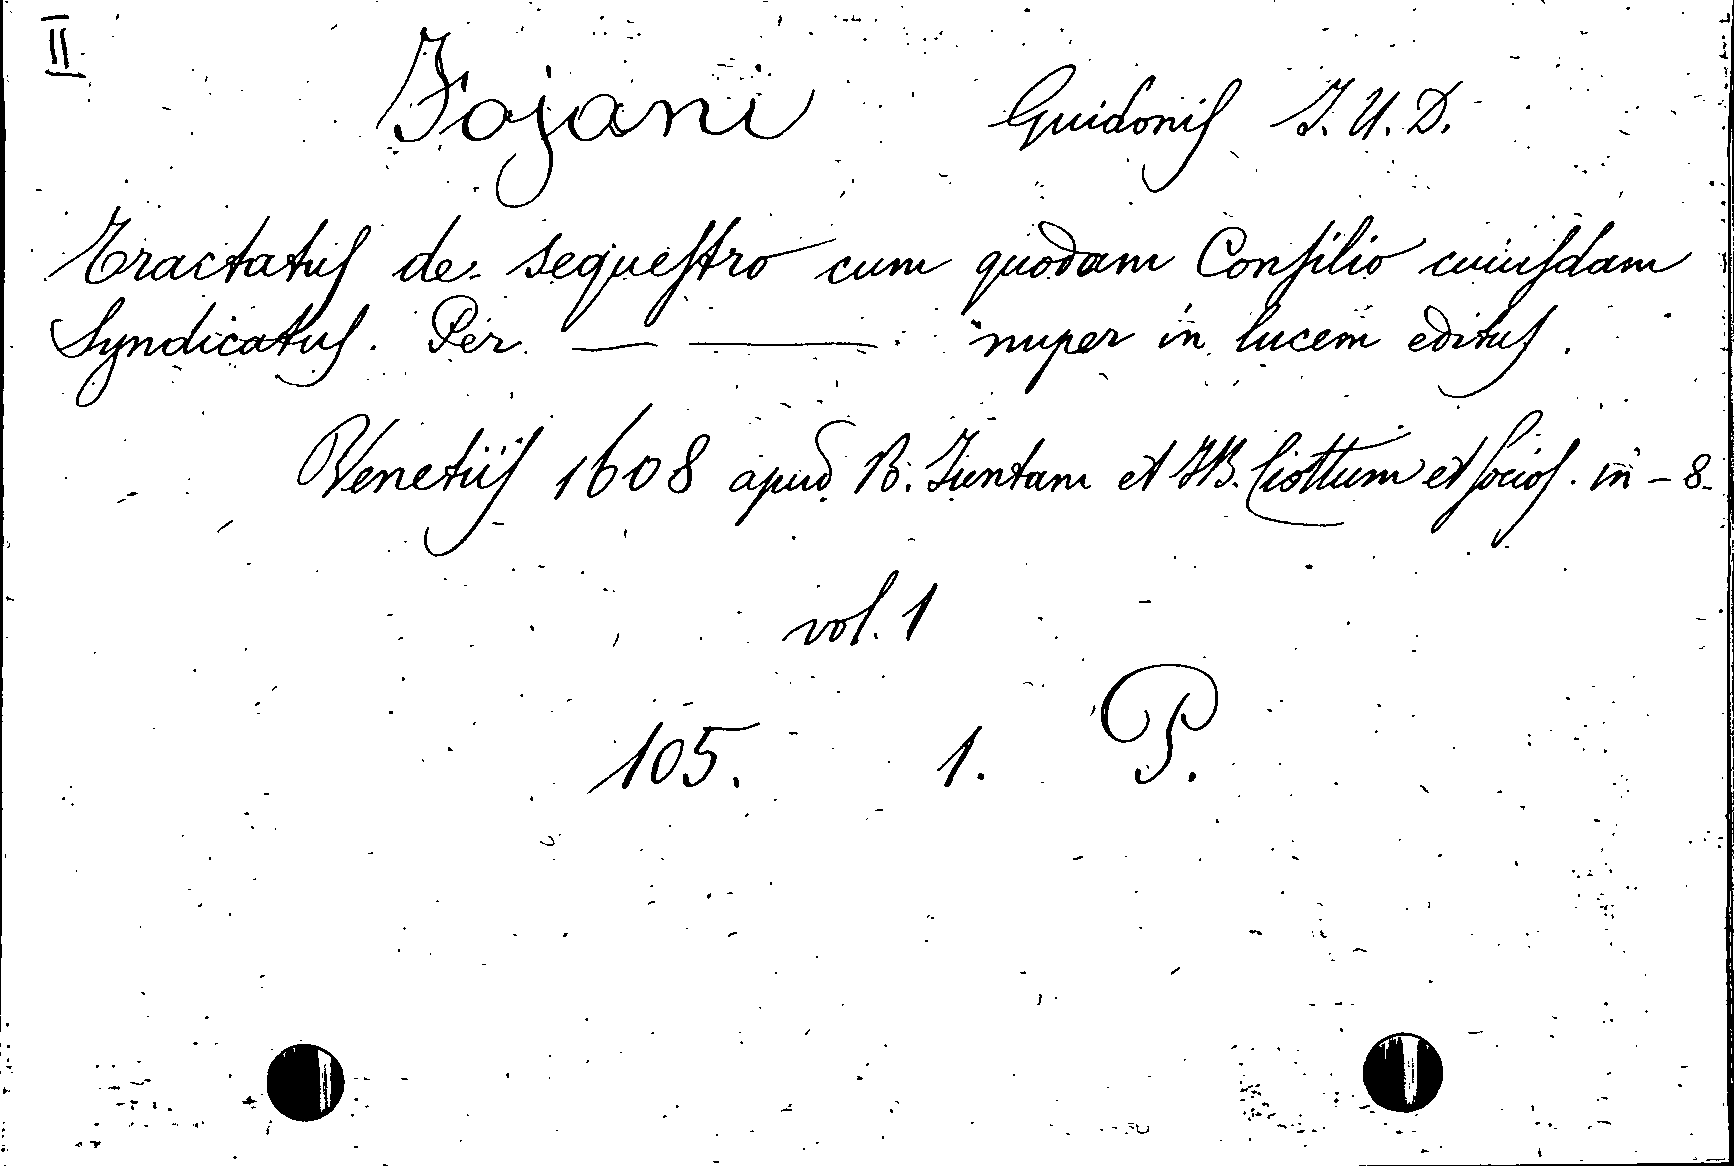 II
Fojani Guidonis J. U. D.
Tractatus de sequestro cum quodam Consilio cuiusdam
Syndicatus. Per — —— nuper in lucem editus.
Venetiis 1608 apud B. Juntam et JB. Ciottum et Socios. in-8.
vol. 1
105. 1. P.